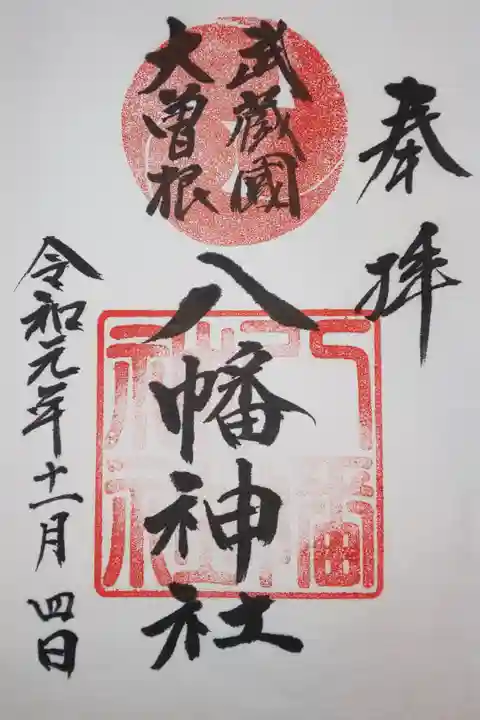 奉拝
武蔵國
大曽根
八幡神社
令和元年十一月四日
八幡神社